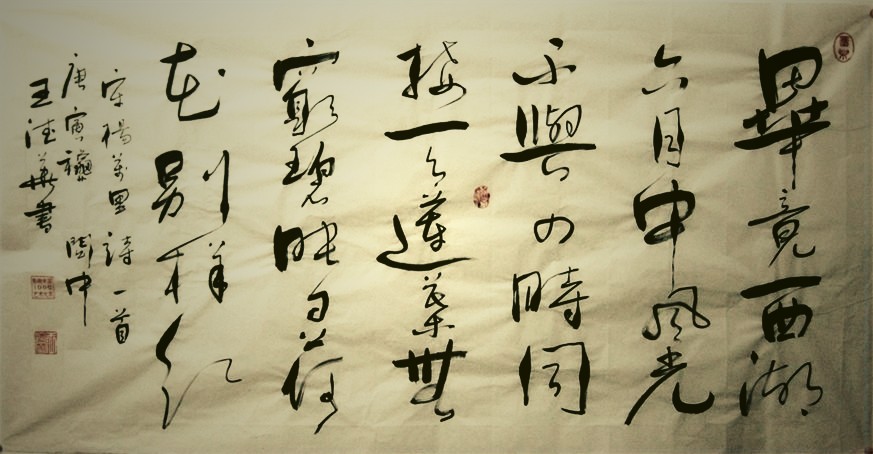 畢竟西湖
六月中風光
不與四時同
接天蓮葉無
窮碧映日荷
花別樣紅
宋楊萬里詩一首
庚寅龝閬中
王德華書